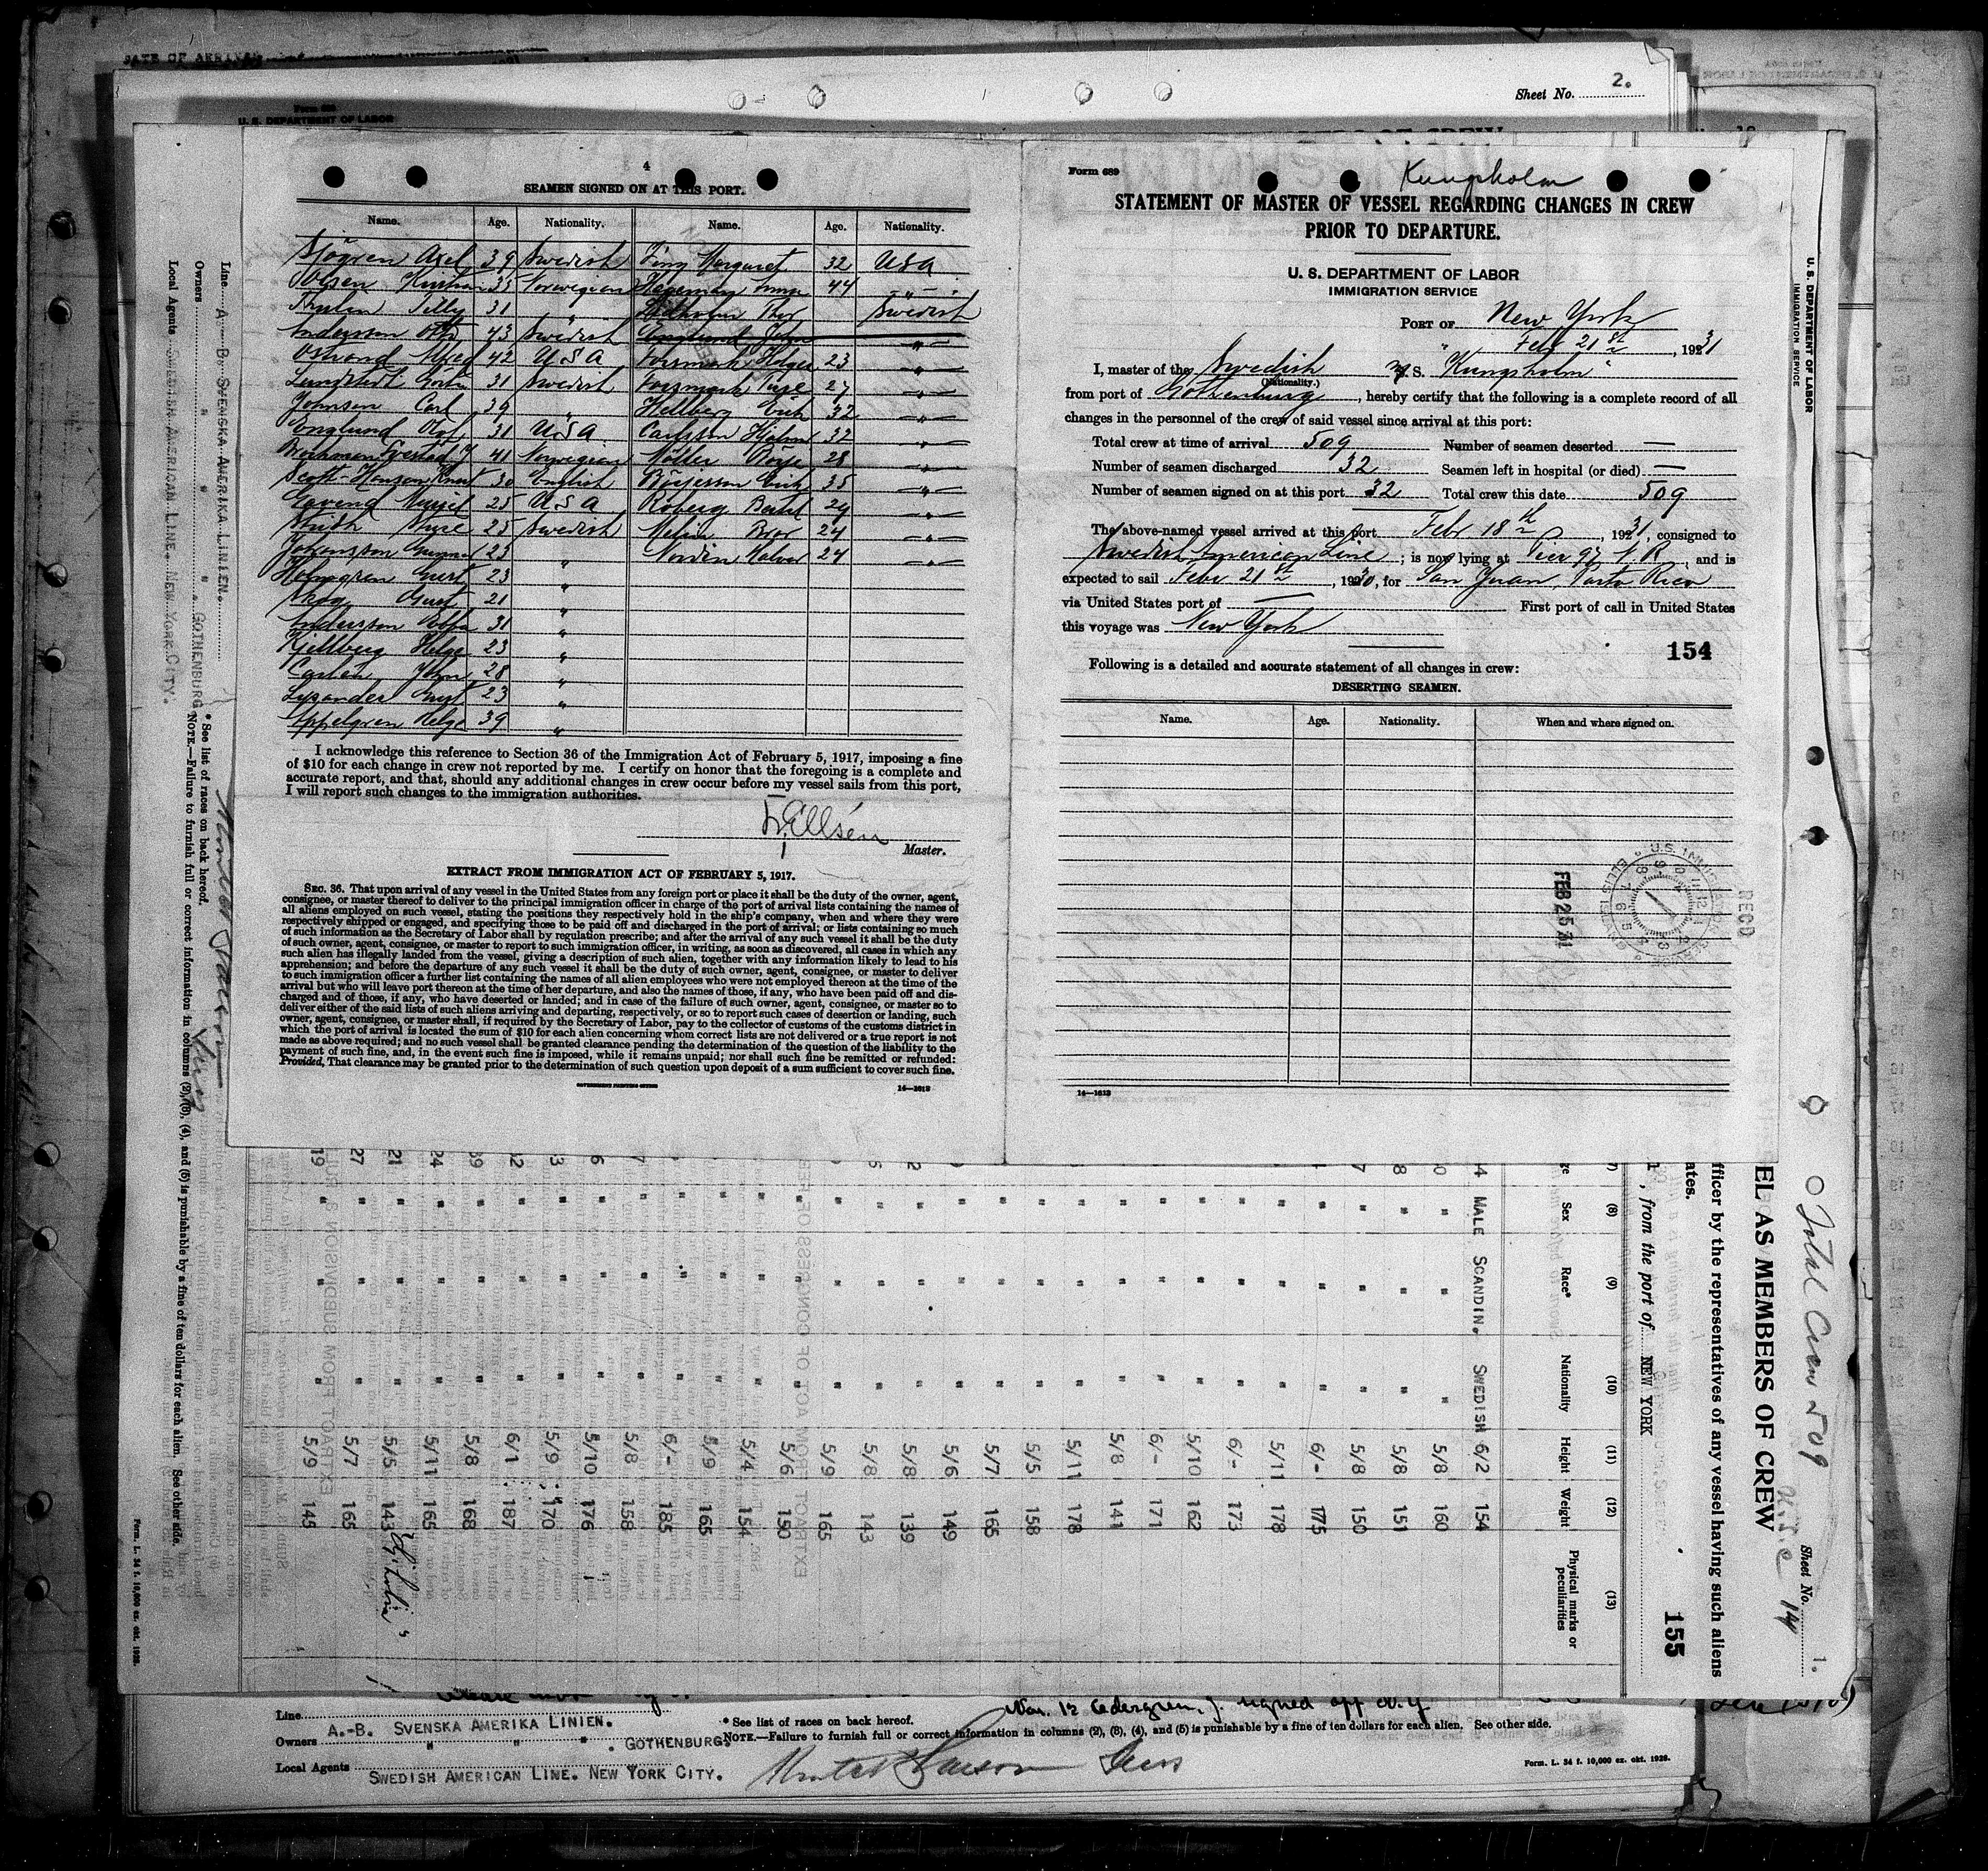 DATE OF ARRIVAL
Form 689
U. S. DEPARTMENT OF LABOR
Sheet No. 2.
4
SEAMEN SIGNED ON AT THIS PORT.
Name. Age. Nationality. Name. Age. Nationality.
Sjögren Axel 39 Swedish Margaret 32 USA
Olsen 35 Norwegian 44 "
Thulen Tilly 31 " Thor Swedish
Andersson Otto 43 Swedish Englund John "
Östrand Alfred 42 USA Forsmark Helge 23 "
Lundstedt Gösta 31 Swedish Forsmark Ture 27 "
Johnson Carl 39 " Hellberg Erik 32 "
Englund Olof 31 USA Carlsson Hjalmar 32 "
41 Norwegian Möller Börje 28 "
Scott-Hansen Knut 30 English Börjesson Erik 35 "
25 USA Roberg Bertil 29 "
Ture 25 Swedish Melin Bror 24 "
Johansson Gunnar 23 " Nordin Halvar 24 "
Holmgren Gurt 23 "
Skog Gust 21 "
Andersson Ebba 31 "
Kjellberg Helge 23 "
Carlén John 28 "
Lysander Gurt 23 "
Appelgren Helge 39 "
I acknowledge this reference to Section 36 of the Immigration Act of February 5, 1917, imposing a fine
of $10 for each change in crew not reported by me. I certify on honor that the foregoing is a complete and
accurate report, and that, should any additional changes in crew occur before my vessel sails from this port,
I will report such changes to the immigration authorities.
Ellsén
Master.
EXTRACT FROM IMMIGRATION ACT OF FEBRUARY 5, 1917.
SEC. 36. That upon arrival of any vessel in the United States from any foreign port or place it shall be the duty of the owner, agent,
consignee, or master thereof to deliver to the principal immigration officer in charge of the port of arrival lists containing the names of
all aliens employed on such vessel, stating the positions they respectively hold in the ship's company, when and where they were
respectively shipped or engaged, and specifying those to be paid off and discharged in the port of arrival; or lists containing so much
of such information as the Secretary of Labor shall by regulation prescribe; and after the arrival of any such vessel it shall be the duty
of such owner, agent, consignee, or master to report to such immigration officer, in writing, as soon as discovered, all cases in which any
such alien has illegally landed from the vessel, giving a description of such alien, together with any information likely to lead to his
apprehension; and before the departure of any such vessel it shall be the duty of such owner, agent, consignee, or master to deliver
to such immigration officer a further list containing the names of all alien employees who were not employed thereon at the time of the
arrival but who will leave port thereon at the time of her departure, and also the names of those, if any, who have been paid off and dis-
charged and of those, if any, who have deserted or landed; and in case of the failure of such owner, agent, consignee, or master so to
deliver either of the said lists of such aliens arriving and departing, respectively, or so to report such cases of desertion or landing, such
owner, agent, consignee, or master shall, if required by the Secretary of Labor, pay to the collector of customs of the customs district in
which the port of arrival is located the sum of $10 for each alien concerning whom correct lists are not delivered or a true report is not
made as above required; and no such vessel shall be granted clearance pending the determination of the question of the liability to the
payment of such fine, and, in the event such fine is imposed, while it remains unpaid; nor shall such fine be remitted or refunded:
Provided, That clearance may be granted prior to the determination of such question upon deposit of a sum sufficient to cover such fine.
GOVERNMENT PRINTING OFFICE
14—1613
Form 689
Kungsholm
STATEMENT OF MASTER OF VESSEL REGARDING CHANGES IN CREW
PRIOR TO DEPARTURE.
U. S. DEPARTMENT OF LABOR
IMMIGRATION SERVICE
PORT OF New York
Febr 21st, 1931
I, master of the Swedish M.S. "Kungsholm"
(Nationality.)
from port of Gothenburg, hereby certify that the following is a complete record of all
changes in the personnel of the crew of said vessel since arrival at this port:
Total crew at time of arrival 509 Number of seamen deserted —
Number of seamen discharged 32 Seamen left in hospital (or died) —
Number of seamen signed on at this port 32 Total crew this date 509
The above-named vessel arrived at this port Febr 18th, 1931, consigned to
Swedish American Line; is now lying at Pier 97 N R, and is
expected to sail Febr 21st, 1930, for San Juan Porto Rico
via United States port of — First port of call in United States
this voyage was New York
154
Following is a detailed and accurate statement of all changes in crew:
DESERTING SEAMEN.
Name. Age. Nationality. When and where signed on.
RECD
U.S. IMMIGRATION
ELLIS ISLAND
FEB 25 31
14—1613
U. S. DEPARTMENT OF LABOR
IMMIGRATION SERVICE
Total Crew 509
Sheet No. 1.
14
EL AS MEMBERS OF CREW
fficer by the representatives of any vessel having such aliens
ates.
, from the port of NEW YORK
155
(8) (9) (10) (11) (12) (13)
Sex Race* Nationality Height Weight Physical marks or peculiarities
MALE SCANDIN. SWEDISH 6/2 154
" " " 5/8 160
" " " 5/8 151
" " " 5/8 150
" " " 6/- 175
" " " 5/11 178
" " " 6/- 173
" " " 5/10 162
" " " 6/- 171
" " " 5/8 141
" " " 5/11 178
" " " 5/5 158
" " " 5/7 165
" " " 5/6 149
" " " 5/8 139
" " " 5/8 143
" " " 5/9 165
" " " 5/6 150
" " " 5/4 154
" " " 5/9 165
" " " 6/- 185
" " " 5/8 158
" " " 5/10 176
" " " 5/9 170
" " " 6/1 187
" " " 5/8 168
" " " 5/11 165
" " " 5/5 143
" " " 5/7 165
" " " 5/9 145
Line A.-B. SVENSKA AMERIKA LINIEN.
Owners " " " GOTHENBURG
Local Agents SWEDISH AMERICAN LINE. NEW YORK CITY.
* See list of races on back hereof.
NOTE.—Failure to furnish full or correct information in columns (2), (3), (4), and (5) is punishable by a fine of ten dollars for each alien. See other side.
Form. L. 54 f. 10,000 ex. okt. 1928.
No. 12 Cedergren, J. signed off N.Y.
Line
A.-B. SVENSKA AMERIKA LINIEN.
Owners " " " GOTHENBURG.
Local Agents SWEDISH AMERICAN LINE. NEW YORK CITY.
* See list of races on back hereof.
NOTE.—Failure to furnish full or correct information in columns (2), (3), (4), and (5) is punishable by a fine of ten dollars for each alien. See other side.
Form. L. 54 f. 10,000 ex. okt. 1928.